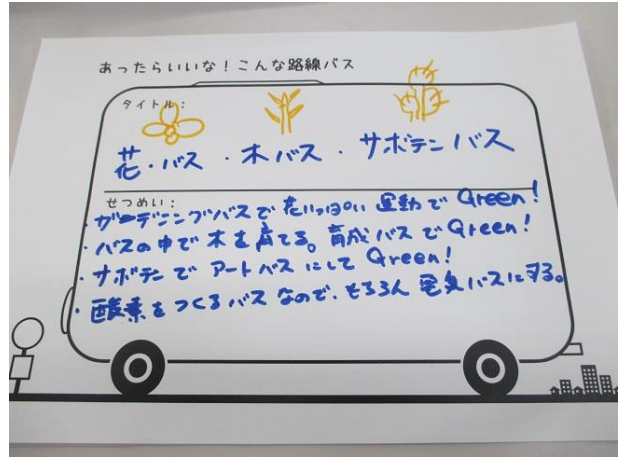 あったらいいな！こんな路線バス
タイトル：
花・バス ・木バス・サボテンバス
せつめい：
・ガーデニングバスで花いっぱい 運動で Green!
・バスの中で木を育てる。育成バスでGreen!
・サボテンで アートバス にして Green!
・酸素をつくるバス なので、もちろん 電気バスにする。